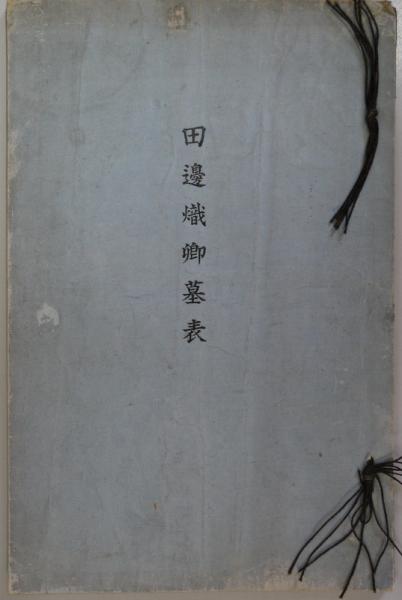 田邊熾卿墓表